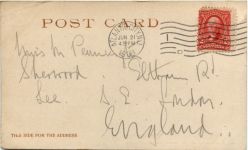 POST CARD
JUN 21
Miss M
Sherwood. Eltham Rd.
Lee. S. E. London.
England.
THIS SIDE FOR THE ADDRESS